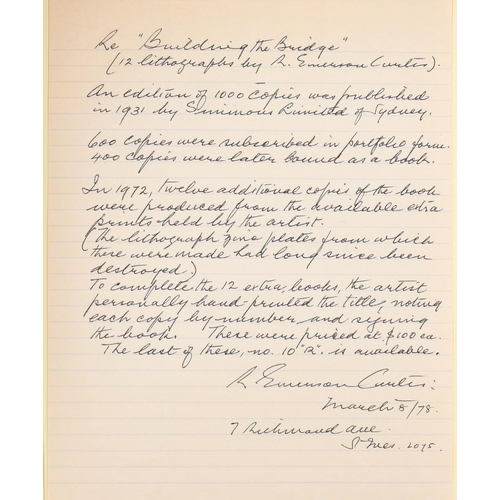 Re "Building the Bridge"
(12 lithographs by R. Emerson Curtis).
An edition of 1000 copies was published
in 1931 by Simmons Limited of Sydney.
600 copies were subscribed in portfolio form.
400 copies were later bound as a book.
In 1972, twelve additional copies of the book
were produced from the available extra
prints held by the artist.
(The lithograph zinc plates from which
these were made had long since been
destroyed)
To complete the 12 extra books, the artist
personally hand-printed the title, noting
each copy by number and signing
the book. These were priced at $100 ea.
The last of these, no. 10 "R" is available.
R Emerson Curtis:
March 8/78.
7 Richmond Ave.
St Ives. 2075.